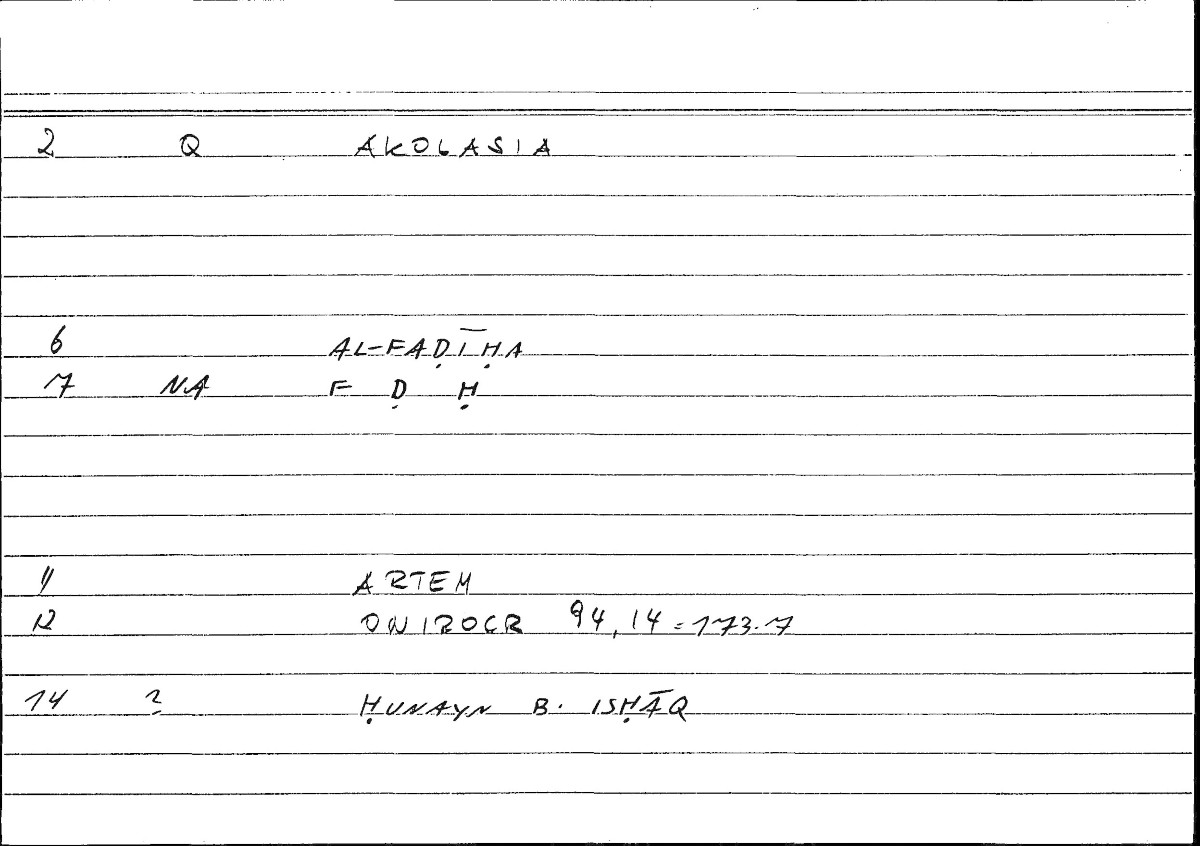 2 Q AKOLASIA
6 AL-FAḌĪḤA
7 NA F Ḍ Ḥ
11 ARTEM
12 ONIROCR 94,14=173.7
14 2 ḤUNAYN B. ISḤĀQ